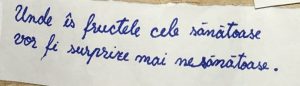 Unde îs fructele cele sănătoase
vor fi surprize mai nesănătoase.